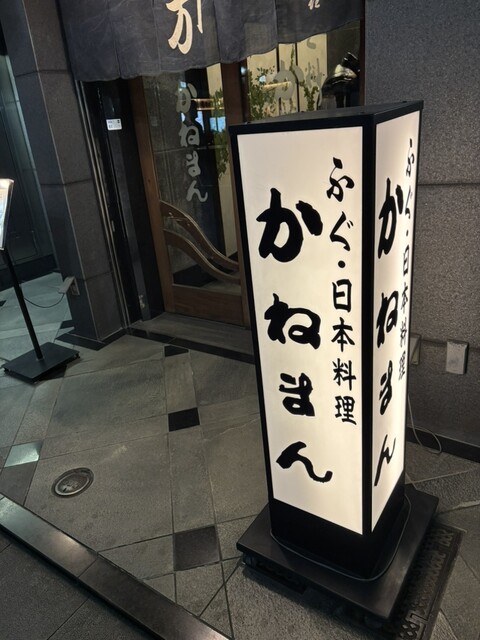 か
かねまん
か
ふぐ・日本料理
かねまん
ふぐ・日本料理
かねまん